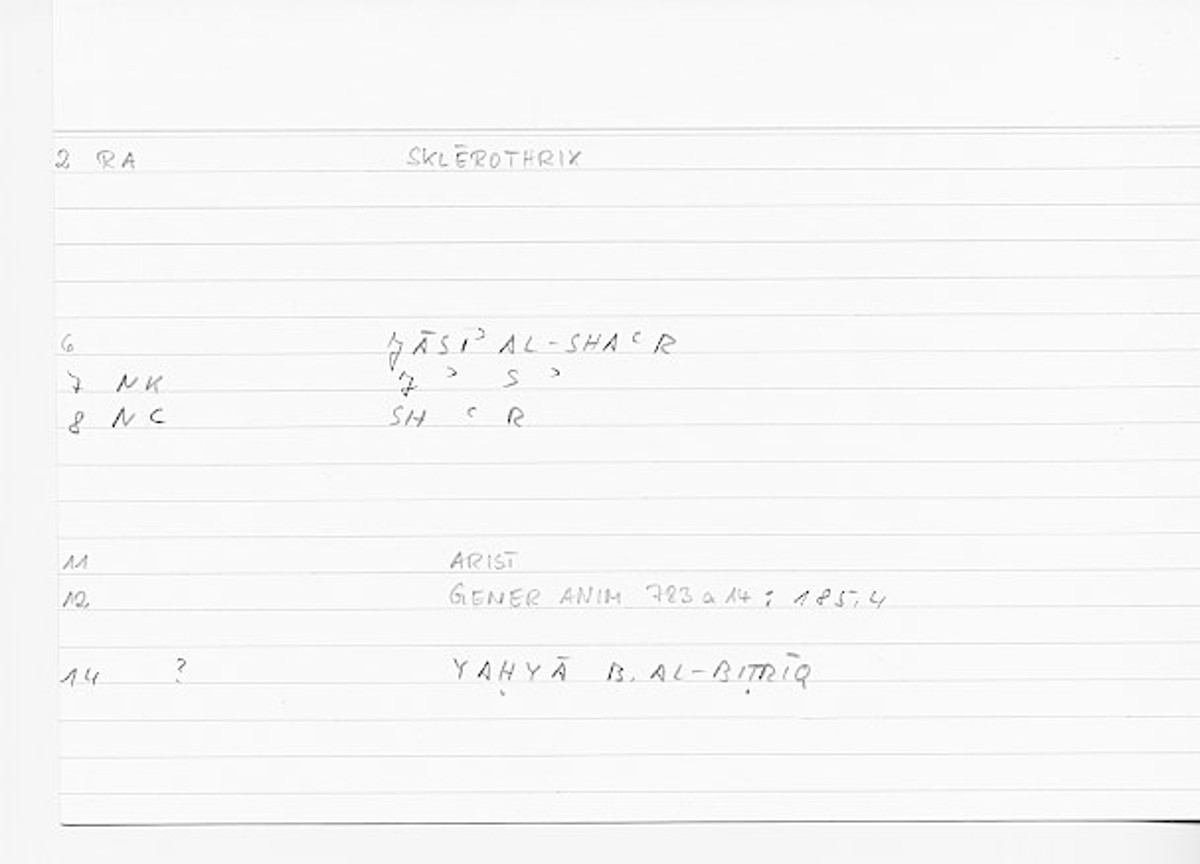 2 RA SKLĒROTHRIX
6 JĀSIʾ AL-SHAʿR
7 NK J ʾ S ʾ
8 NC SH ʿ R
11 ARIST
12 GENER ANIM 783 a 14 : 185.4
14 ? YAḤYĀ B. AL-BIṬRĪQ